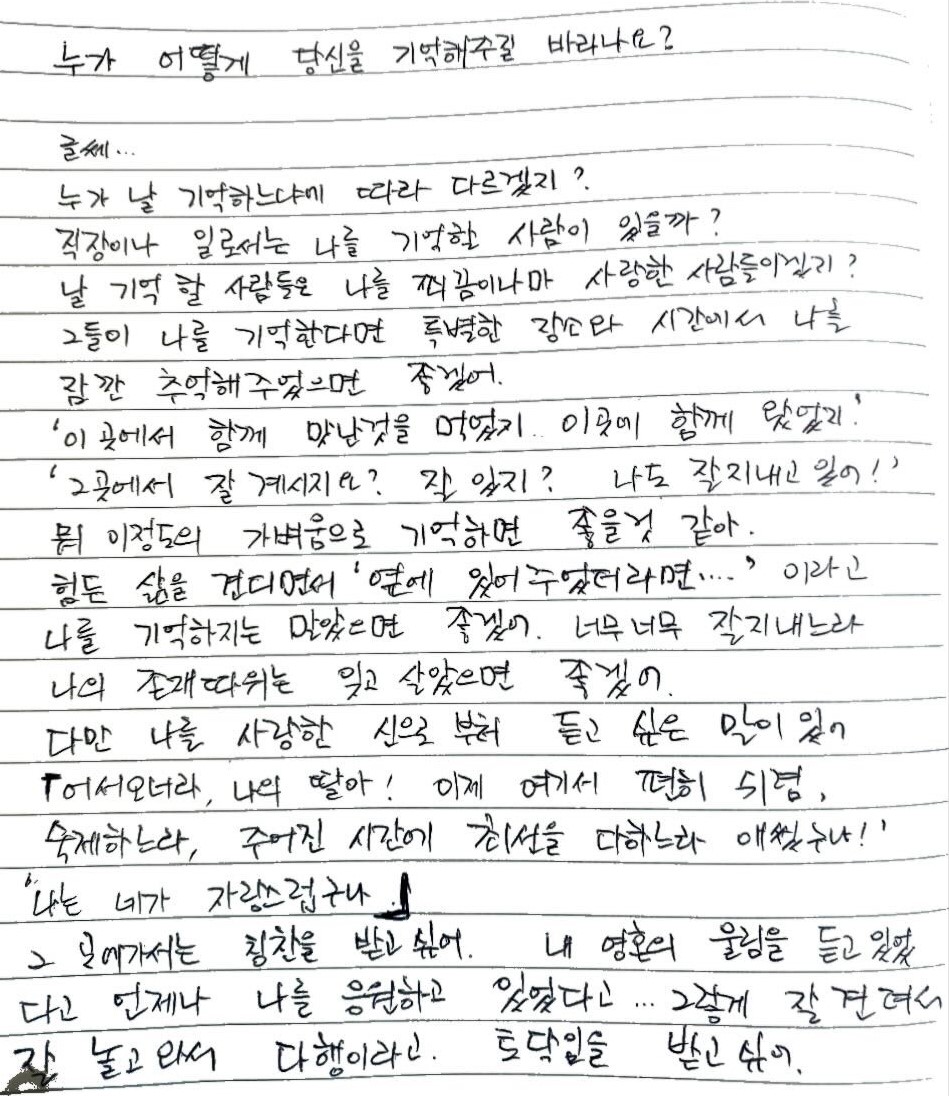 누가 어떻게 당신을 기억해주길 바라나요?
글쎄...
누가 날 기억하느냐에 따라 다르겠지?
직장이나 일로서는 나를 기억할 사람이 있을까?
날 기억 할 사람들은 나를 쬐끔이나마 사랑한 사람들이겠지?
그들이 나를 기억한다면 특별한 장소와 시간에서 나를
잠깐 추억해주었으면 좋겠어.
'이 곳에서 함께 맛난것을 먹었지.. 이곳에 함께 왔었지!'
'그곳에서 잘 계시지요? 잘 있지? 나도 잘지내고 있어!'
뭐 이정도의 가벼움으로 기억하면 좋을것 같아.
힘든 삶을 견디면서 '옆에 있어 주었더라면....' 이라고
나를 기억하지는 말았으면 좋겠어. 너무너무 잘지내느라
나의 존재따위는 잊고 살았으면 좋겠어.
다만 나를 사랑한 신으로 부터 듣고 싶은 말이 있어
「어서오너라, 나의 딸아! 이제 여기서 편히 쉬렴,
숙제하느라, 주어진 시간에 최선을 다하느라 애썼구나!'
'나는 네가 자랑스럽구나.」
그 곳에가서는 칭찬을 받고 싶어. 내 영혼의 울림을 듣고있었
다고 언제나 나를 응원하고 있었다고... 그렇게 잘 견뎌서
잘 놀고 와서 다행이라고. 토닥임을 받고 싶어.